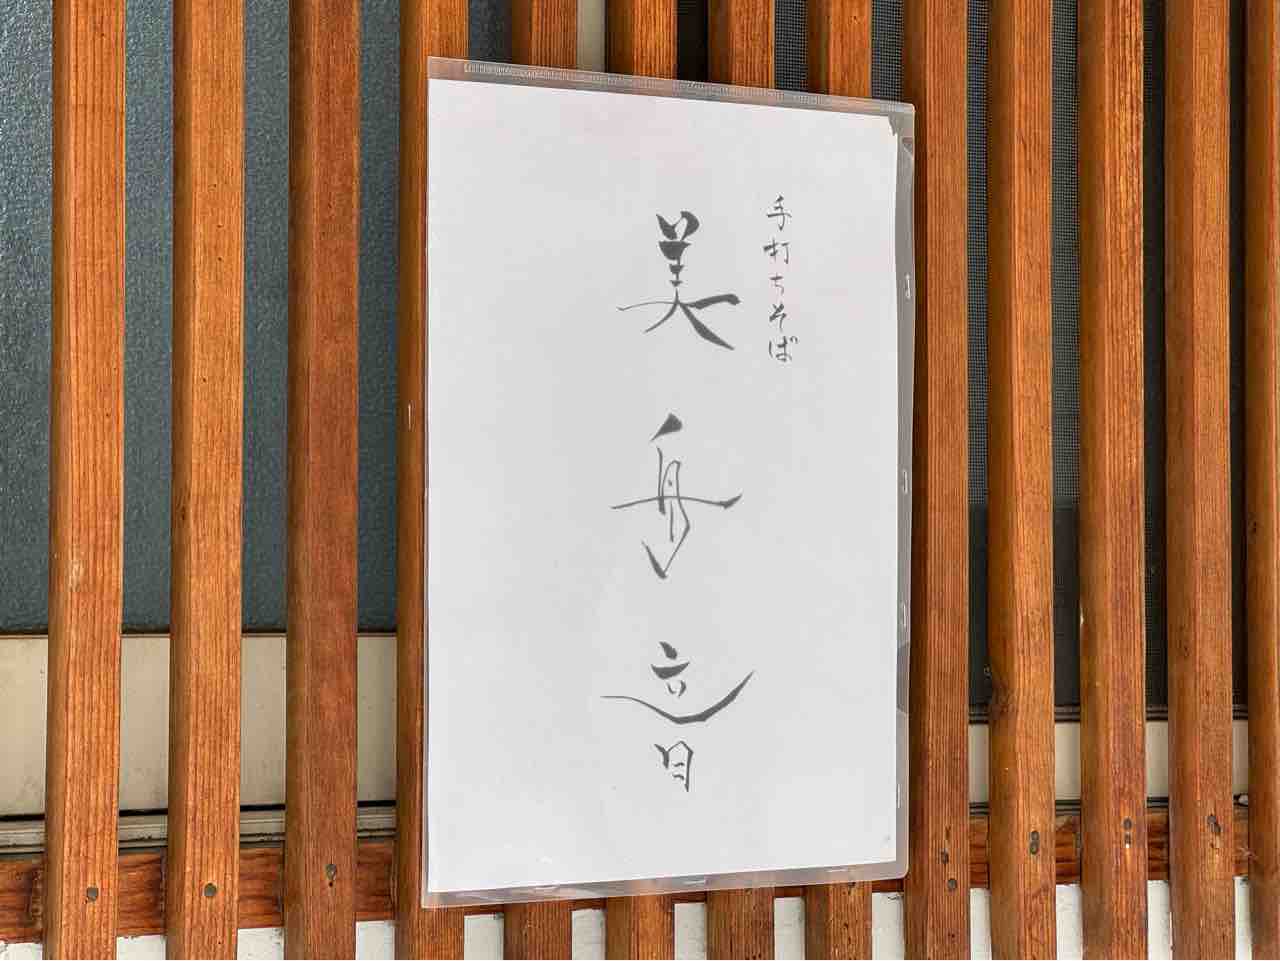 手打ちそば
美舟音